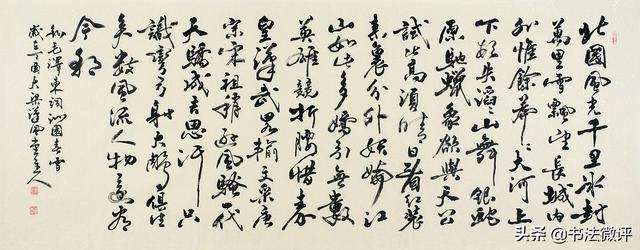 北國風光千里冰封
萬里雪飄望長城內
外惟餘莽々大河上
下頓失滔々山舞銀蛇
原馳蠟象欲與天公
試比高須晴日看紅裝
素裹分外妖嬈江
山如此多嬌引無數
英雄競折腰惜秦
皇漢武略輸文采唐
宗宋祖稍遜風騷一代
天驕成吉思汗只
識彎弓射大雕俱往
矣數風流人物還看
今朝
毛澤東詞沁園春雪
大梁 風堂主人
头条 @书法微评